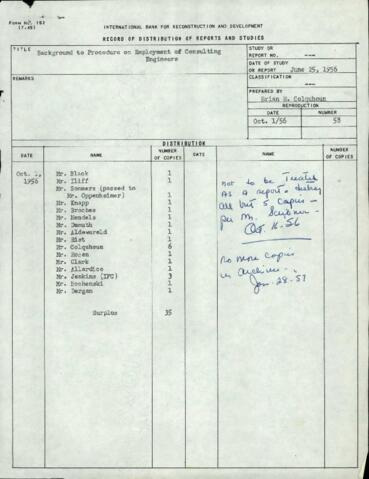 FORM NO. 152
(7-49)
INTERNATIONAL BANK FOR RECONSTRUCTION AND DEVELOPMENT
RECORD OF DISTRIBUTION OF REPORTS AND STUDIES
TITLE
Background to Procedure on Employment of Consulting
Engineers
STUDY OR
REPORT NO. ---
DATE OF STUDY
OR REPORT June 25, 1956
CLASSIFICATION
---
REMARKS
PREPARED BY
Brian H. Colquhoun
REPRODUCTION
DATE NUMBER
Oct. 1/56 58
DISTRIBUTION
DATE NAME NUMBER OF COPIES DATE NAME NUMBER OF COPIES
Oct. 1, Mr. Black 1
1956 Mr. Iliff 1
Mr. Sommers (passed to
Mr. Oppenheimer) 1
Mr. Knapp 1
Mr. Broches 1
Mr. Mendels 1
Mr. Demuth 1
Mr. Aldewereld 1
Mr. Rist 1
Mr. Colquhoun 6
Mr. Rosen 1
Mr. Clark 1
Mr. Allardice 1
Mr. Jenkins (IFC) 3
Mr. Bochenski 1
Mr. Dergan 1
Surplus 35
Not to be treated
as a report - destroy
all but 5 copies -
per Mr. Scribner -
Oct. 16-56
No more copies
in archives -
Jan-28-57